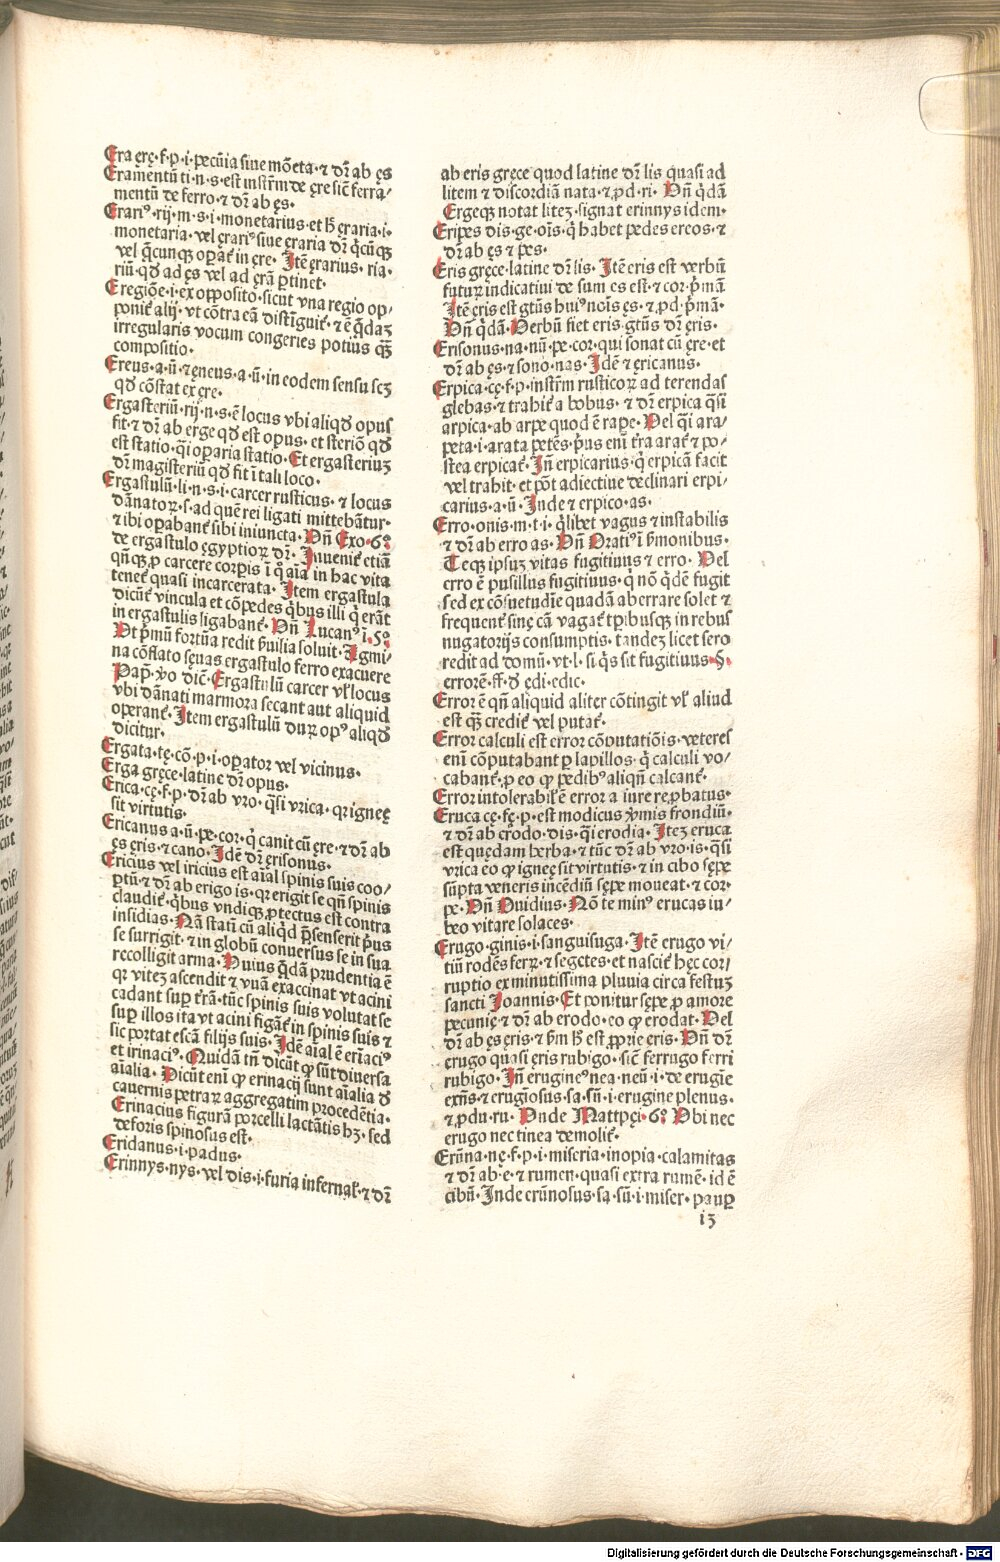 Era ęrę·f·p·i·pecūia siue mōeta·⁊ dr̄ ab ęs
Eramentū ti·n·s·est instr̄m de ęre sic̄ ferra/
mentū de ferro·⁊ dr̄ ab ęs·
Erariꝰ·rij·m·s·i·monetarius·et h̄ ęraria·i·
monetaria·vel ęrariꝰ siue ęraria dr̄ q̄cūqꝫ
vel q̄cunqꝫ oꝑat̄ in ęre· Itē ęrarius·ria·
riū·qḋ ad ęs vel ad ęrā ꝑtinet·
E regiōe·i·ex opposito·sicut vna regio op·
ponit̄ alij·vt cōtra eā distīguit̄·⁊ ē q̄daꝫ
irregularis vocum congeries potius qꝫ̄
compositio·
Ereus·a·ū·⁊ ęneus·a·ū·in eodem sensu scꝫ
qḋ cōstat ex ęre·
Ergasteriū·rij·n·s·ē locus vbi aliqḋ opus
fit·⁊ dr̄ ab erge qḋ est opus·et steriō qḋ
est statio·q̄i oꝑaria statio· Et ergasteriuꝫ
dr̄ magisteriū qḋ fit ī tali loco·
Ergastulū·li·n·s·i·carcer rusticus·⁊ locus
dānatoꝝ·s·ad quē rei ligati mittebāt̄ur·
⁊ ibi oꝑabant̄ sibi iniuncta· Vn̄ Exo·6°
de ergastulo ęgyptioꝝ dr̄· Inuenit̄ etiā
qn̄qꝫ ꝓ carcere corꝑis ī q̄ aīa in hac vita
tenet̄ quasi incarcerata· Item ergastula
dicūt̄ vincula et cōpedes q̄bus illi q̄ erāt
in ergastulis ligabant̄· Vn̄ Lucanꝰ ī·5°
Vt p̄mū fortūa redit ẜuilia soluit· Agmi/
na cōflato sęuas ergastulo ferro exacuere
Pap̄·ꝟo dic̄· Ergastulū carcer vl̄ locus
vbi dānati marmora secant aut aliquid
operant̄· Item ergastulū duꝝ opꝰ aliqḋ
dicitur·
Ergata·tę·cō·p·i·oꝑator vel vicinus·
Erga gręce·latine dr̄ opus·
Erica·cę·f·p·dr̄ ab vro·q̄si vrica·qꝛ igneę
sit virtutis·
Ericanus·a·ū·pe·cor·q̄ canit cū ęre·⁊ dr̄ ab
ęs ęris·⁊ cano· Idē dr̄ ęrisonus·
Ericius vel iricius est aīal spinis suis coo/
ꝑtū·⁊ dr̄ ab erigo is·qꝛ erigit se qn̄ spinis
claudit̄·q̄bus vndiqꝫ ꝓtectus est contra
insidias· Nā statī cū aliqḋ p̄senserit p̄us
se surrigit·⁊ in globū conuersus se in sua
recolligit arma· Huius q̄dā prudentia ē
qꝛ viteꝫ ascendit ⁊ vuā exaccinat vt acini
cadant suꝑ tr̄ā·tūc spinis suis volutat se
suꝑ illos ita vt acini figāt̄ in spinis suis ⁊
sic portat escā filijs suis· Idē aīal ē erīaciꝰ
et irinaciꝰ· Quidā tn̄ dicūt ꝙ sūt diuersa
aīalia· Dicūt enī ꝙ erinacij sunt aīalia ḋ
cauernis petraꝝ aggregatim procedētia·
Erinacius figurā porcelli lactātis hꝫ·sed
deforis spinosus est·
Eridanus·i·padus·
Erinnys·nys·vel dis·i·furia infernal̄·⁊ dr̄
ab eris gręce quod latine dr̄ lis quasi ad
litem ⁊ discordiā nata·⁊ ꝓd·ri· Vn̄ q̄dā
Ergeqꝫ notat liteꝫ·signat erinnys idem·
Eripes dis·ge·oīs·q̄ habet pedes ereos·⁊
dr̄ ab ęs ⁊ pes·
Eris gręce·latine dr̄ lis· Itē eris est verbū
futuꝝ indicatiui de sum es est·⁊ cor·p̄mā
Itē ęris est gtūs huiꝰ noīs ęs·⁊ ꝓd·p̄mā·
Vn̄ q̄dā· Verbū fiet eris·gtūs dr̄ ęris·
Erisonus·na·nū·pe·cor·qui sonat cū ęre·et
dr̄ ab ęs·⁊ sono·nas· Idē ⁊ ęricanus·
Erpica·cę·f·p·instr̄m rusticoꝝ ad terendas
glebas·⁊ trahit̄ a bobus·⁊ dr̄ erpica q̄si
arpica·ab arpe quod ē rape· Vel q̄i ara/
peta·i·arata petēs·p̄us enī tr̄a arat̄ ⁊ po/
stea erpicat̄· In̄ erpicarius·q̄ erpicā facit
vel trahit·et pōt adiectiue declinari erpi/
carius·a·ū· Inde ⁊ erpico·as·
Erro·onis·m·t·i·q̄libet vagus ⁊ instabilis
⁊ dr̄ ab erro as· Vn̄ Oratiꝰ ī ẜmonibus·
Teqꝫ ipsuꝫ vitas fugitiuus ⁊ erro· Vel
erro ē pusillus fugitiuus·q̄ nō q̄dē fugit
sed ex cōsuetudīe quadā aberrare solet ⁊
frequent̄ sinę cā vagat̄ tp̄ibusqꝫ in rebus
nugatorijs consumptis·tandeꝫ licet sero
redit ad domū·vt·l·si q̄s sit fugitiuus·§·
errorē·ff·ḋ ędi·edic·
Error ē qn̄ aliquid aliter cōtingit vl̄ aliud
est qꝫ̄ credit̄ vel putat̄·
Error calculi est error cōputatiōis·veteres
enī cōputabant ꝑ lapillos·q̄ calculi vo/
cabant̄·ꝓ eo ꝙ pedibꝰ aliqn̄ calcant̄·
Error intolerabil̄ ē error a iure reprobatus·
Eruca cę·fę·p·est modicus ꝟmis frondiū·
⁊ dr̄ ab erodo·dis·q̄i erodia· Iteꝫ eruca
est quędam herba·⁊ tūc dr̄ ab vro·is·q̄si
vrica eo ꝙ igneę sit virtutis·⁊ in cibo sępe
sūpta veneris incēdiū sępe moueat·⁊ cor·
pe· Vn̄ Ouidius· Nō te minꝰ erucas iu/
beo vitare solaces·
Erugo·ginis·i·sanguisuga· Itē erugo vi/
tiū rodēs feꝝ·⁊ segetes·et nascit̄ hęc cor/
ruptio ex minutissima pluuia circa festuꝫ
sancti Joannis· Et ponitur sępe ꝓ amore
pecunię·⁊ dr̄ ab erodo·eo ꝙ erodat· Vel
dr̄ ab ęs ęris·⁊ ẜm h̄ est ꝓprie ęris· Vn̄ dr̄
erugo quasi ęris rubigo·sic̄ ferrugo ferri
rubigo· In̄ erugineꝰ nea·neū·i·de erugīe
exn̄s·⁊ erugīosus·sa·sū·i·erugine plenus·
⁊ ꝓdu·ru· Vnde Mattꝑei·6° Vbi nec
erugo nec tinea demolit̄·
Erūna·nę·f·p·i·miseria·inopia·calamitas
⁊ dr̄ ab·e·⁊ rumen·quasi extra rumē·id ē
cibū· Inde erūnosus·sa·sū·i·miser·pauꝑ
i3
Digitalisierung gefördert durch die Deutsche Forschungsgemeinschaft - DFG